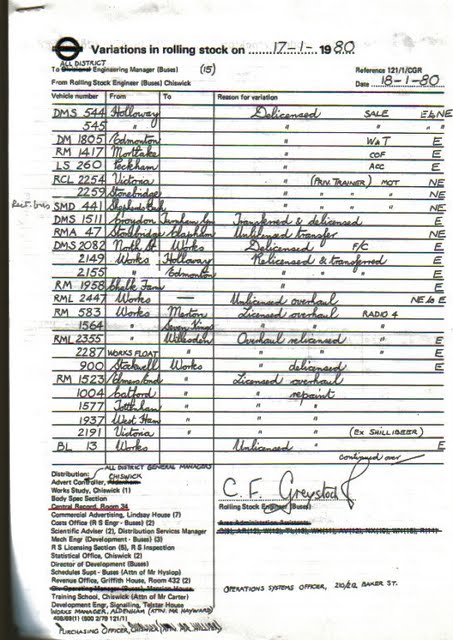 Variations in rolling stock on 17-1-1980
ALL DISTRICT
To Divisional Engineering Manager (Buses) (15) Reference 121/1/CGR
From Rolling Stock Engineer (Buses) Chiswick Date 18-1-80
Vehicle number From To Reason for variation
DMS 544 Holloway Delicensed SALE E&NE
545 " " " " "
DM 1805 Edmonton " WAT E
RM 1417 Mortlake " COF E
LS 260 Peckham " ACC E
RCL 2254 Victoria " (PRIV. TRAINER) MOT NE
2259 Stonebridge " " " NE
Rect. bus SMD 441 Shepherds Bush " " NE
DMS 1511 Croydon Transferred & delicensed E
RMA 47 Stonebridge Clapham Unlicensed transfer NE
DMS 2082 North St Works Delicensed F/C E
2149 Works Holloway Relicensed & transferred E
2155 " Edmonton " " " E
RM 1958 Chalk Farm " E
RML 2447 Works — Unlicensed overhaul NE to E
RM 583 Works Merton Licensed overhaul RADIO 4
1564 " Seven Kings " " "
RML 2355 " Willesden Overhaul relicensed E
2287 WORKS FLOAT " " " E
900 Stockwell Works " delicensed E
RM 1523 Elmers End " Licensed overhaul
1004 Catford " " repaint
1577 Tottenham " " "
1937 West Ham " " "
2191 Victoria " " " (EX SHILLIBEER)
BL 13 Works Unlicensed " E
continued over
Distribution: ALL DISTRICT GENERAL MANAGERS
CHISWICK
Advert Controller, Aldenham
Works Study, Chiswick (1)
Body Spec Section
Central Record, Room 34
Commercial Advertising, Lindsey House (7)
Costs Office (R S Engr - Buses) (2)
Scientific Adviser (2), Distribution Services Manager
Mech Engr (Development - Buses) (3)
R S Licensing Section (5), R S Inspection
Statistical Office, Chiswick (2)
Director of Development (Buses)
Schedules Supt - Buses (Attn of Mr Hyslop)
Revenue Office, Griffith House, Room 432 (2)
Div Operating Manager (Buses), Mansion House
Training School, Chiswick (Attn of Mr Carter)
Development Engr, Signalling, Telstar House
WORKS MANAGER, ALDENHAM (ATTN. MR HAYWARD)
408/89(1) (500 2/79 121/1)
PURCHASING OFFICER, CHISWICK (ATTN. MR
C. F. Greystock
Rolling Stock Engineer (Buses)
Area Administration Assistants
OPERATIONS SYSTEMS OFFICER, 210/212 BAKER ST.